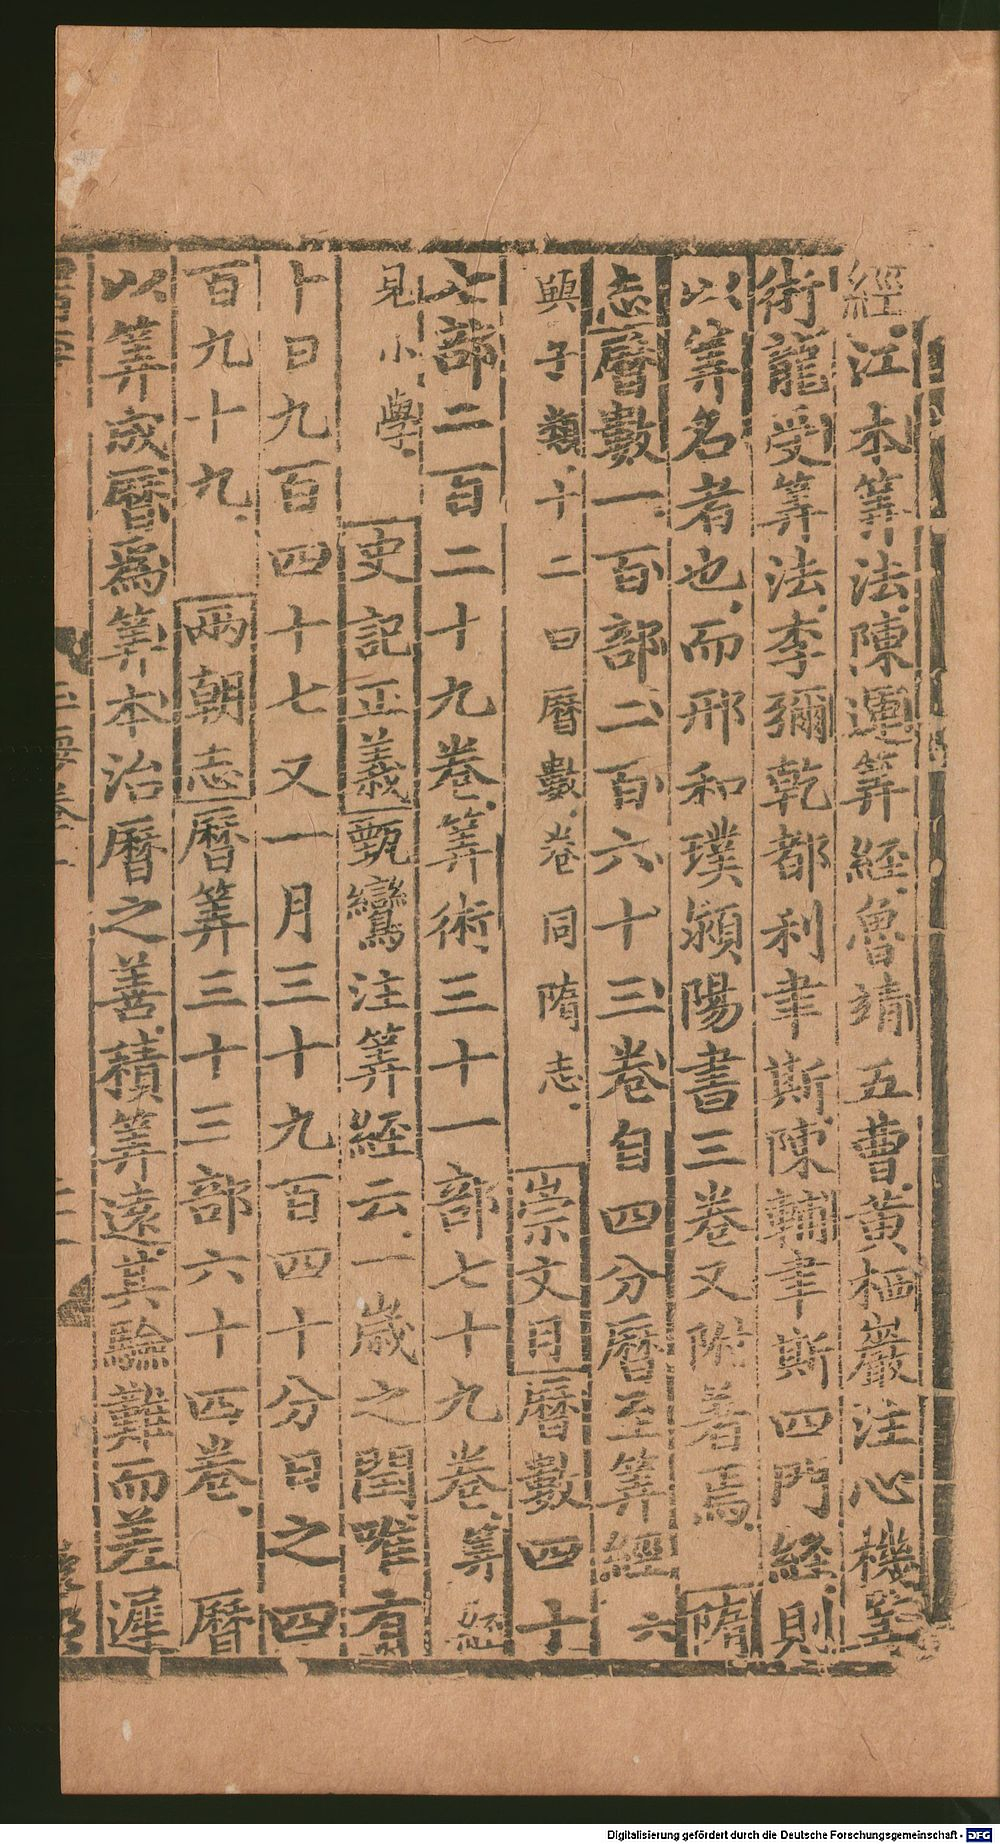 經江本筭法陳運筭經魯靖五曹黃栖巖注心機筭
術龍受筭法李彌乾都利聿斯陳輔聿斯四門經則
以筭名者也而邢和璞潁陽書三卷又附著焉隋
志曆數一百部二百六十三卷自四分曆至筭經六
與子類十二曰曆數卷同隋志崇文目曆數四十
七部二百二十九卷筭術三十一部七十九卷筭經
見小學史記正義甄鸞注筭經云一歲之閏唯有
十日九百四十七又一月三十九百四十分日之四
百九十九兩朝志曆筭三十三部六十四卷曆
以筭成曆爲筭本治曆之善積筭遠其驗難而差遲
Digitalisierung gefördert durch die Deutsche Forschungsgemeinschaft - DFG